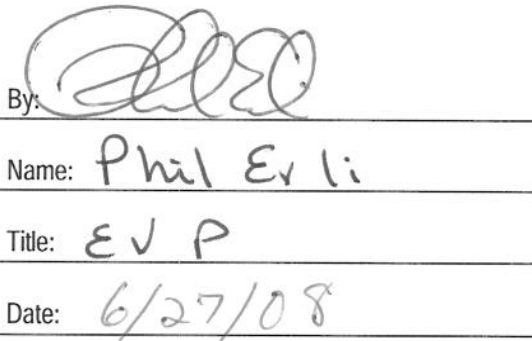 By:
Name: Phil Erli
Title: EVP
Date: 6/27/08